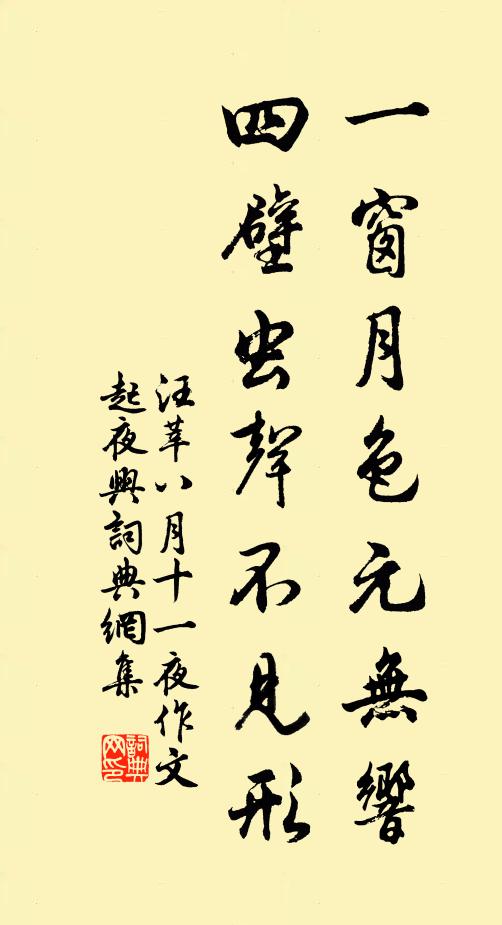 一窗月色元無響
四壁虫聲不見形
汪莘八月十一夜作文
起夜興詞典網集
詞典網印